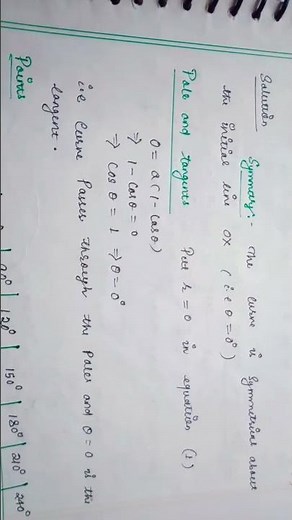 Solution
Symmetry:- The curve is symmetrical about
the initial line OX (i.e θ = 0°)
Pole and tangents Put r = 0 in equation (1)
0 = a(1 - Cosθ)
⇒ 1 - Cosθ = 0
⇒ Cosθ = 1 ⇒ θ = 0°
i.e Curve Passes through the Poles and θ = 0 is the
tangent.
Points
90° | 120° | 150° | 180° | 210° | 240°